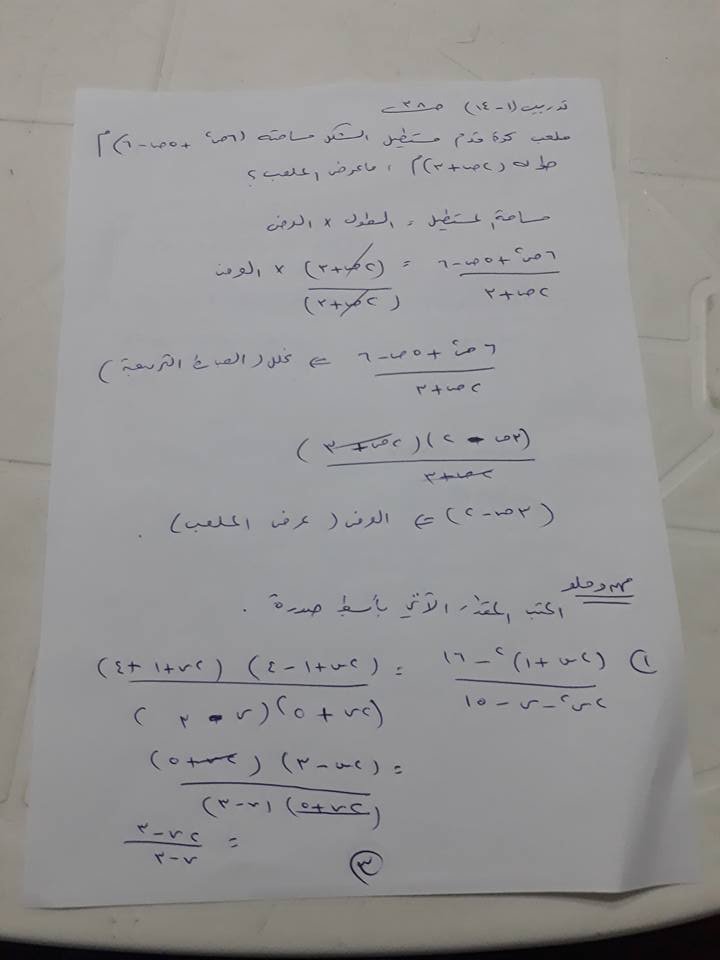 تدريب (١-١٤) صـ٣٨ــ
ملعب كرة قدم مستطيل الشكل مساحته (٦ص٢ + ٥ص - ٦) م
طوله (٢ص + ٣) م ، ما عرض الملعب ؟
مساحة المستطيل = الطول × العرض
٦ص٢ + ٥ص - ٦ / ٢ص + ٣ = (٢ص + ٣) / (٢ص + ٣) × العرض
٦ص٢ + ٥ص - ٦ / ٢ص + ٣ ⇐ نحلل (العبارة التربيعية)
(٣ص - ٢)(٢ص + ٣) / ٢ص + ٣
(٣ص - ٢) ⇐ العرض (عرض الملعب) .
مهم وحلو
اكتب المقدار الآتي بأبسط صورة .
١) (٢س + ١)٢ - ١٦ / ٢س٢ - س - ١٥ = (٢س + ١ - ٤)(٢س + ١ + ٤) / (٢س + ٥)(س - ٣)
= (٢س - ٣)(٢س + ٥) / (٢س + ٥)(س - ٣)
= ٢س - ٣ / س - ٣
٣